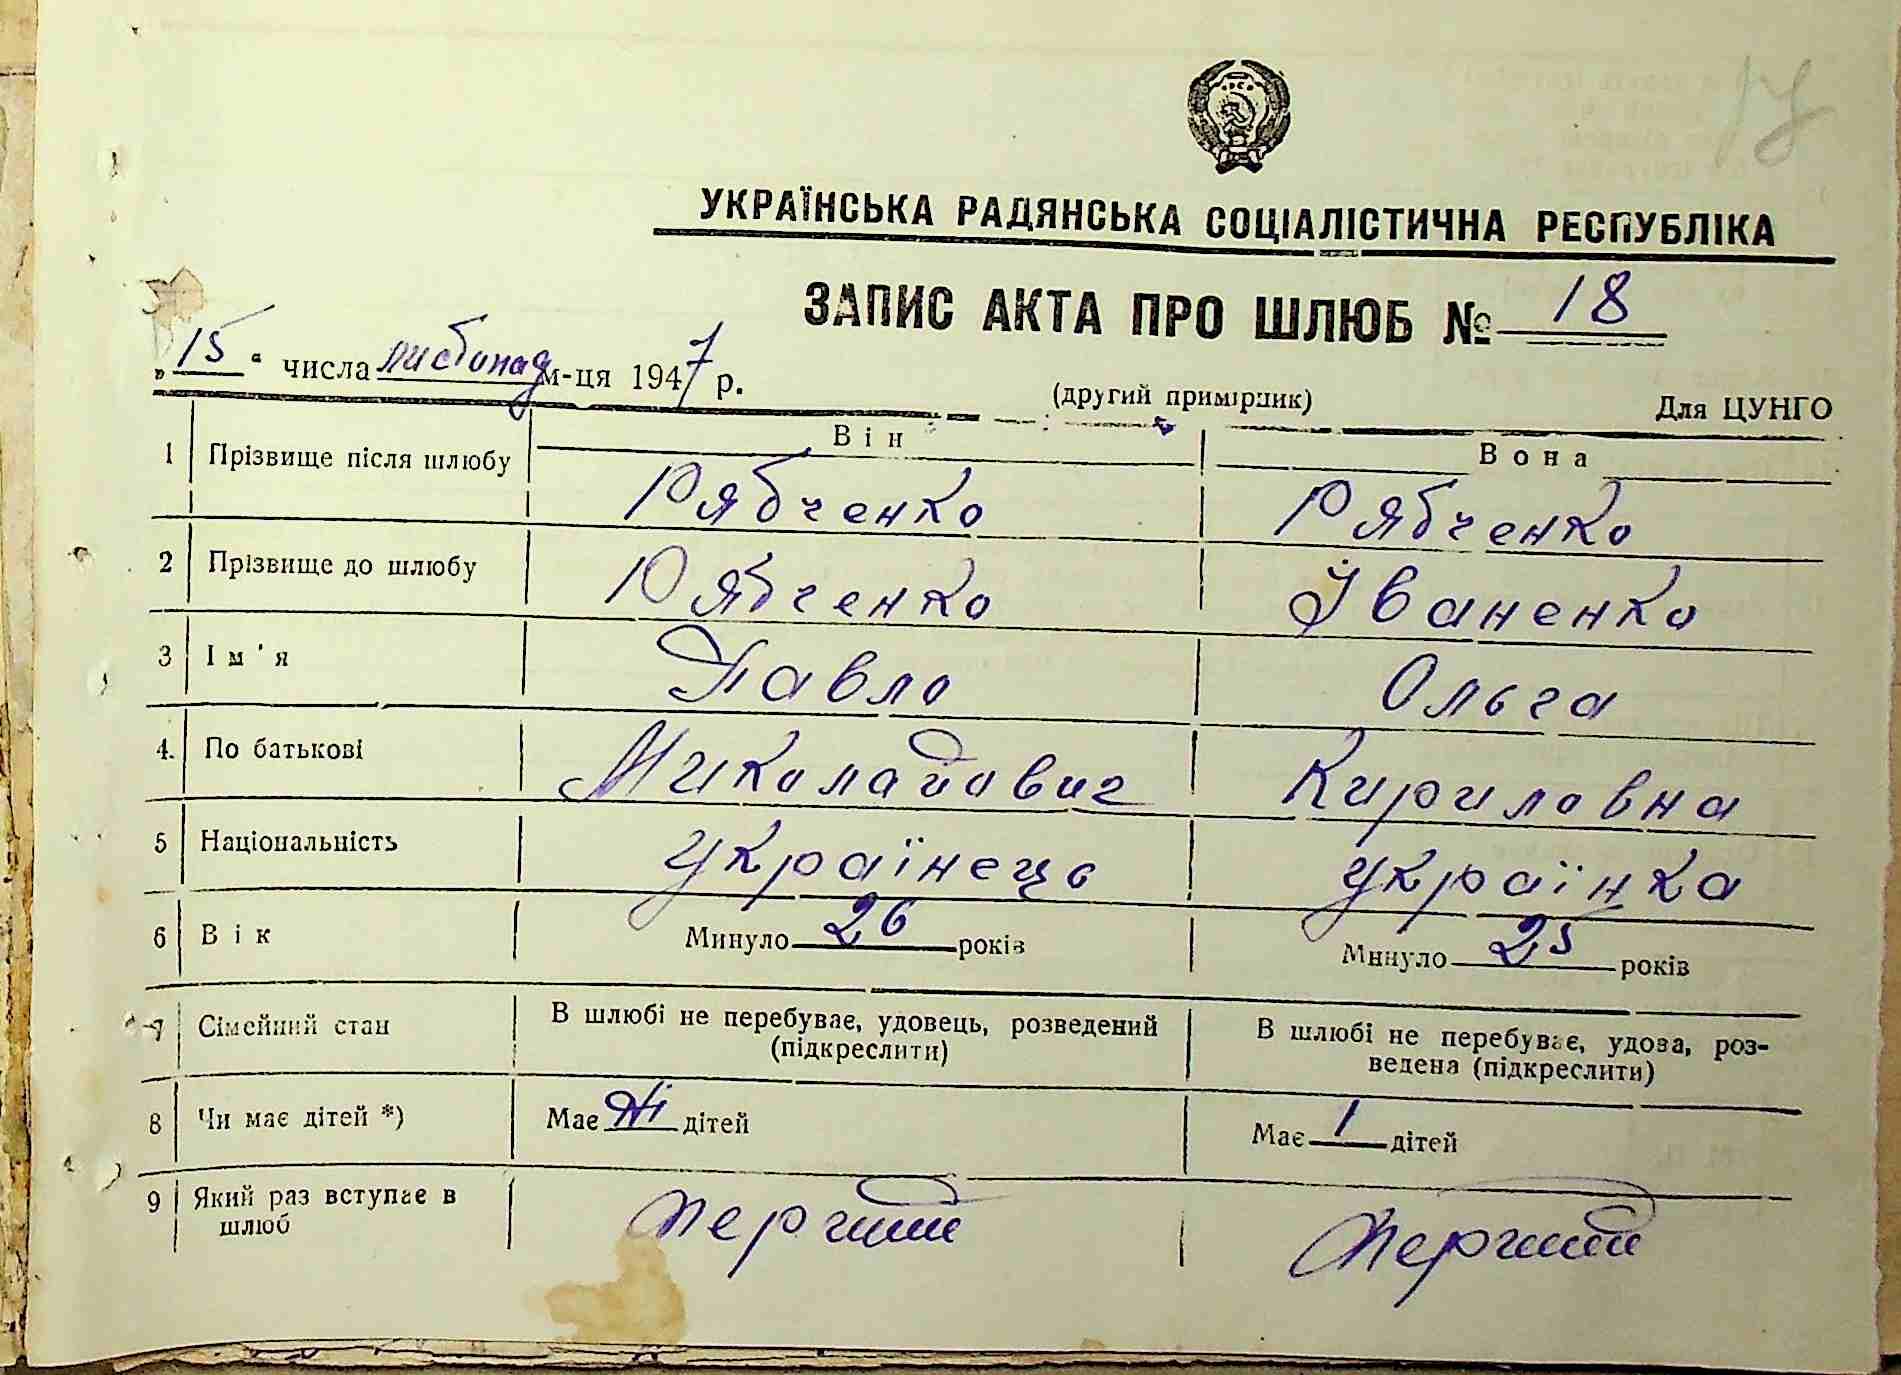 УКРАЇНСЬКА РАДЯНСЬКА СОЦІАЛІСТИЧНА РЕСПУБЛІКА
ЗАПИС АКТА ПРО ШЛЮБ № 18
„15“ числа листопад м-ця 1947 р.
(другий примірник) Для ЦУНГО
Він Вона
1 Прізвище після шлюбу Рябченко Рябченко
2 Прізвище до шлюбу Рябченко Іваненко
3 Ім'я Павло Ольга
4. По батькові Миколайович Кириловна
5 Національність українець українка
6 Вік Минуло 26 років Минуло 25 років
7 Сімейний стан В шлюбі не перебуває, удовець, розведений (підкреслити) В шлюбі не перебуває, удова, роз-
ведена (підкреслити)
8 Чи має дітей *) Має Ні дітей Має 1 дітей
9 Який раз вступає в
шлюб